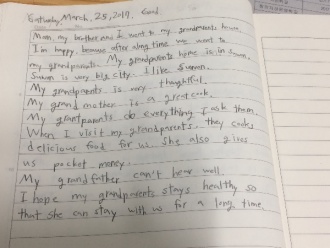 Saturday, March, 25, 2019. Good.
Mom, my brother and I went to my grandparents house.
I'm happy, because after along time we went to
my grandparents. My grandparents home is in Suwon.
Suwon is very big city. I like Suwon.
My grandparents is very thoughtful.
My grand mother is a great cook.
My grantparents do everything I ask them.
When I visit my grandparents, they cooks
delicious food for us. She also gives
us pocket money.
My grandfather can't hear well
I hope my grandparents stays healthy so
that she can stay with us for a long time.